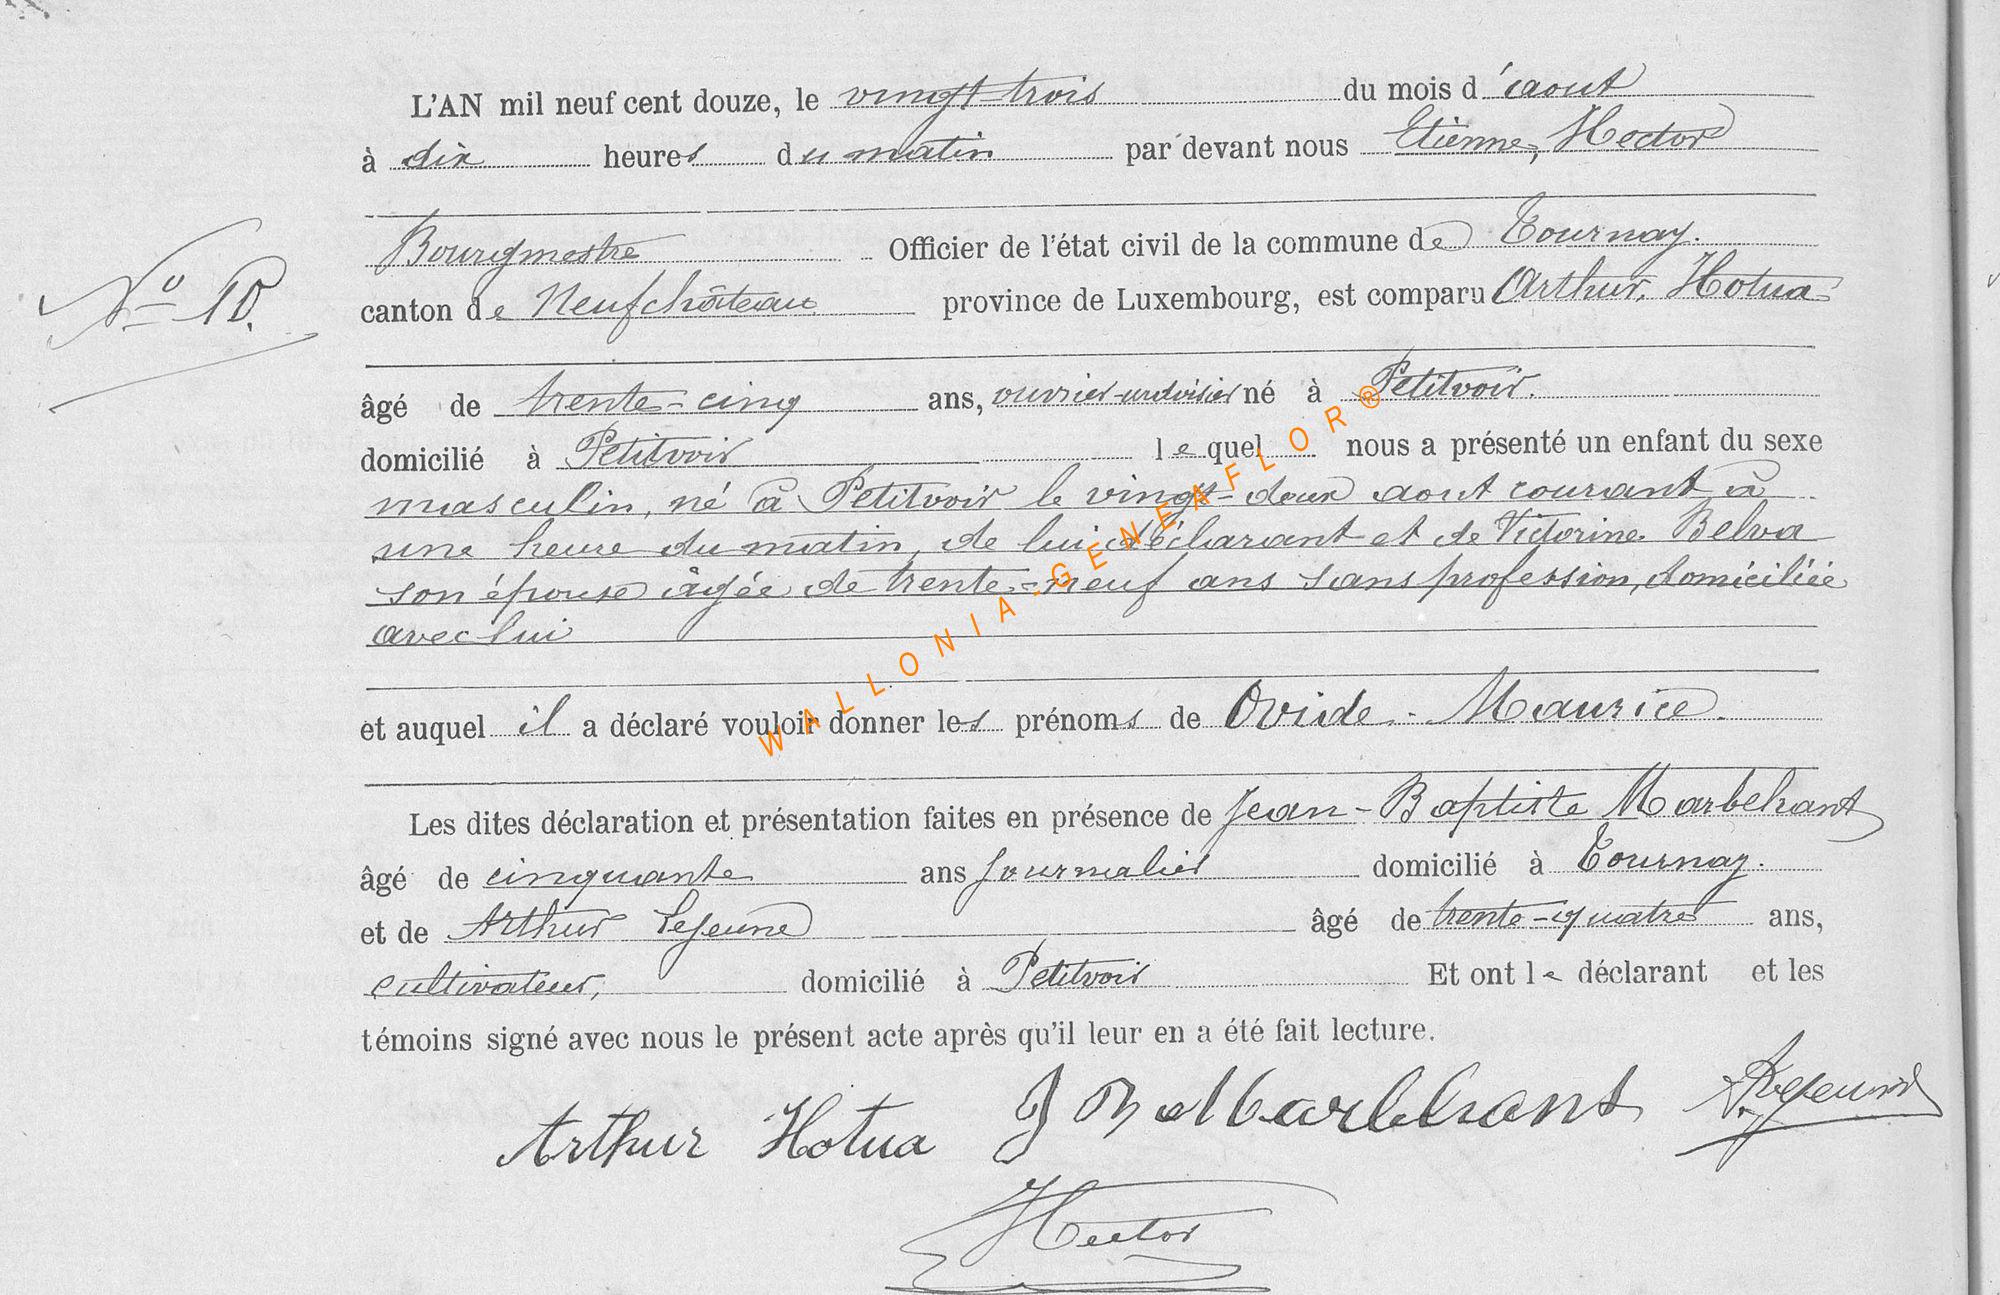 L'AN mil neuf cent douze, le vingt-trois du mois d'aout
à dix heures du matin par devant nous Etienne, Hector
Bourgmestre Officier de l'état civil de la commune de Tournay.
N° 10.
canton de Neufchâteau province de Luxembourg, est comparu Arthur, Hotua
âgé de trente-cinq ans, ouvrier né à Petitvoir.
domicilié à Petitvoir lequel nous a présenté un enfant du sexe
masculin, né à Petitvoir le vingt-deux aout courant à
une heure du matin, de lui déclarant et de Victorine Belva
son épouse âgée de trente-neuf ans sans profession, domiciliée
avec lui
et auquel il a déclaré vouloir donner les prénoms de Ovide-Maurice.
Les dites déclaration et présentation faites en présence de Jean-Baptiste Marbehant
âgé de cinquante ans journalier domicilié à Tournay.
et de Arthur Lejeune âgé de trente-quatre ans,
cultivateur, domicilié à Petitvoir Et ont le déclarant et les
témoins signé avec nous le présent acte après qu'il leur en a été fait lecture.
Arthur Hotua J B Marbehant A. Lejeune
Hector
WALLONIA-GENEAFLOR®